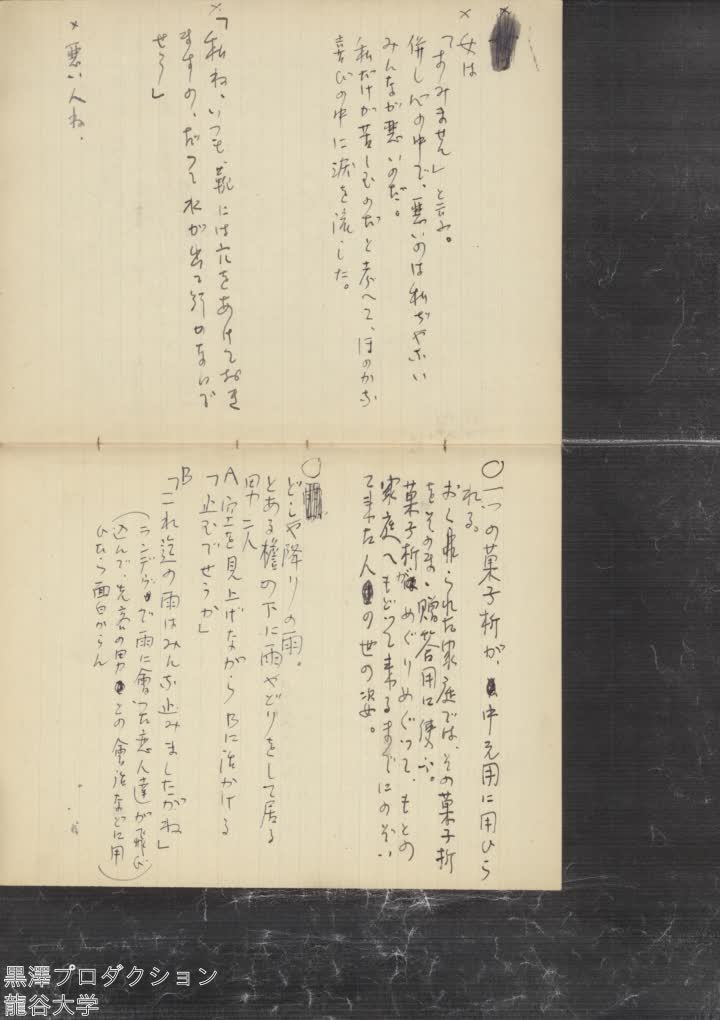 ×女は
「すみません」と云ふ。
併し心の中で、悪いのは私ぢやない
みんなが悪いのだ。
私だけが苦しむのだと考へて、ほのかな
喜びの中に涙を流した。
×「私ね、いつも、靴には穴をあけておき
ますの、だつて水が出て行かないで
せう」
×悪い人ね、
〇一つの菓子折が、中元用に用ひら
れる。
おくられた家庭では、その菓子折
をそのまゝ贈答用に使ふ。
菓子折がめぐりめぐつて、もとの
家庭へもどつて来るまでにのぞい
て来た人の世の姿。
〇
どしや降りの雨。
とある檐の下に雨やどりをして居る
男二人
A空を見上げながらBに話かける
「止むでせうか」
B
「これ迄の雨はみんな止みましたがね」
(ランデヴーで雨に會つた恋人達が飛び
込んで、先客の男この會話などに用
ひたら面白からん)
黒澤プロダクション
龍谷大学